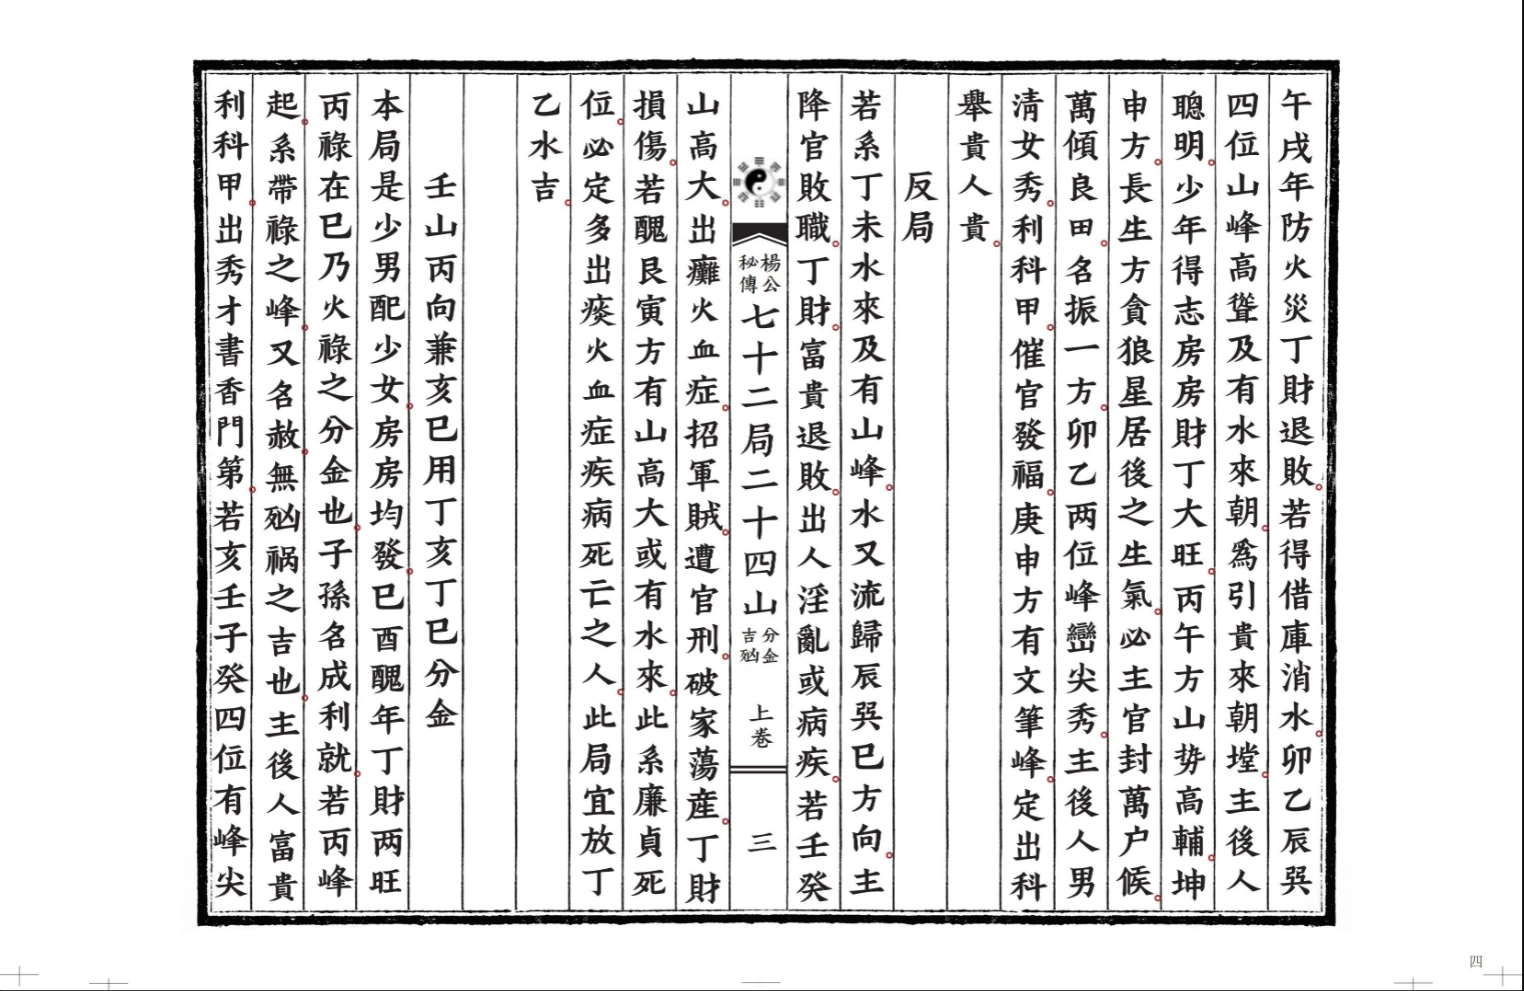 午戌年防火災丁財退敗。若得借庫消水。卯乙辰巽
四位山峰高聳及有水來朝。爲引貴來朝堂。主後人
聰明。少年得志房房財丁大旺。丙午方山势高輔。坤
申方。長生方貪狼星居後之生氣。必主官封萬户候。
萬傾良田。名振一方。卯乙两位峰巒尖秀。主後人男
清女秀。利科甲。催官發福。庚申方有文筆峰。定出科
舉貴人貴。
反局
若系丁未水來及有山峰。水又流歸辰巽巳方向。主
降官敗職。丁財。富貴退敗。出人淫亂或病疾。若壬癸
楊公秘傳 七十二局二十四山 分金吉凶 上卷 三
山高大。出癱火血症。招軍賊。遭官刑。破家蕩産。丁財
損傷。若醜艮寅方有山高大或有水來。此系廉貞死
位。必定多出痰火血症疾病死亡之人。此局宜放丁
乙水吉。
壬山丙向兼亥巳用丁亥丁巳分金
本局是少男配少女。房房均發。巳酉醜年丁財两旺
丙祿在巳乃火祿之分金也。子孫名成利就。若丙峰
起。系帶祿之峰。又名赦。無凶祸之吉也。主後人富貴
利科甲。出秀才書香門第。若亥壬子癸四位有峰尖
四